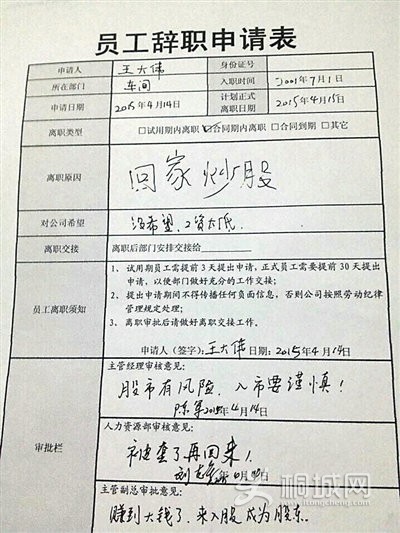 员工辞职申请表
申请人 王大伟 身份证号
所在部门 车间 入职时间 2001年7月1日
申请日期 2015年4月14日 计划正式离职日期 2015年4月15日
离职类型 □试用期内离职 ☑合同期内离职 □合同到期 □其它
离职原因 回家炒股
对公司希望 没希望,工资太低.
离职交接 离职后部门安排交接给
员工离职须知
1、试用期员工需提前3天提出申请,正式员工需要提前30天提出
申请,以便部门做好充分的工作交接;
2、提出申请期间不得传播任何负面信息,否则公司按照劳动纪律
管理规定处理;
3、离职审批后请做好离职交接工作。
申请人(签字):王大伟 日期:2015年4月14日
审批栏
主管经理审核意见:
股市有风险,入市要谨慎!
陈军 2015年4月14日
人力资源部审核意见:
被套了再回来!
主管副总审批意见:
赚到大钱了,来入股成为股东.
桐城网
itongcheng.com